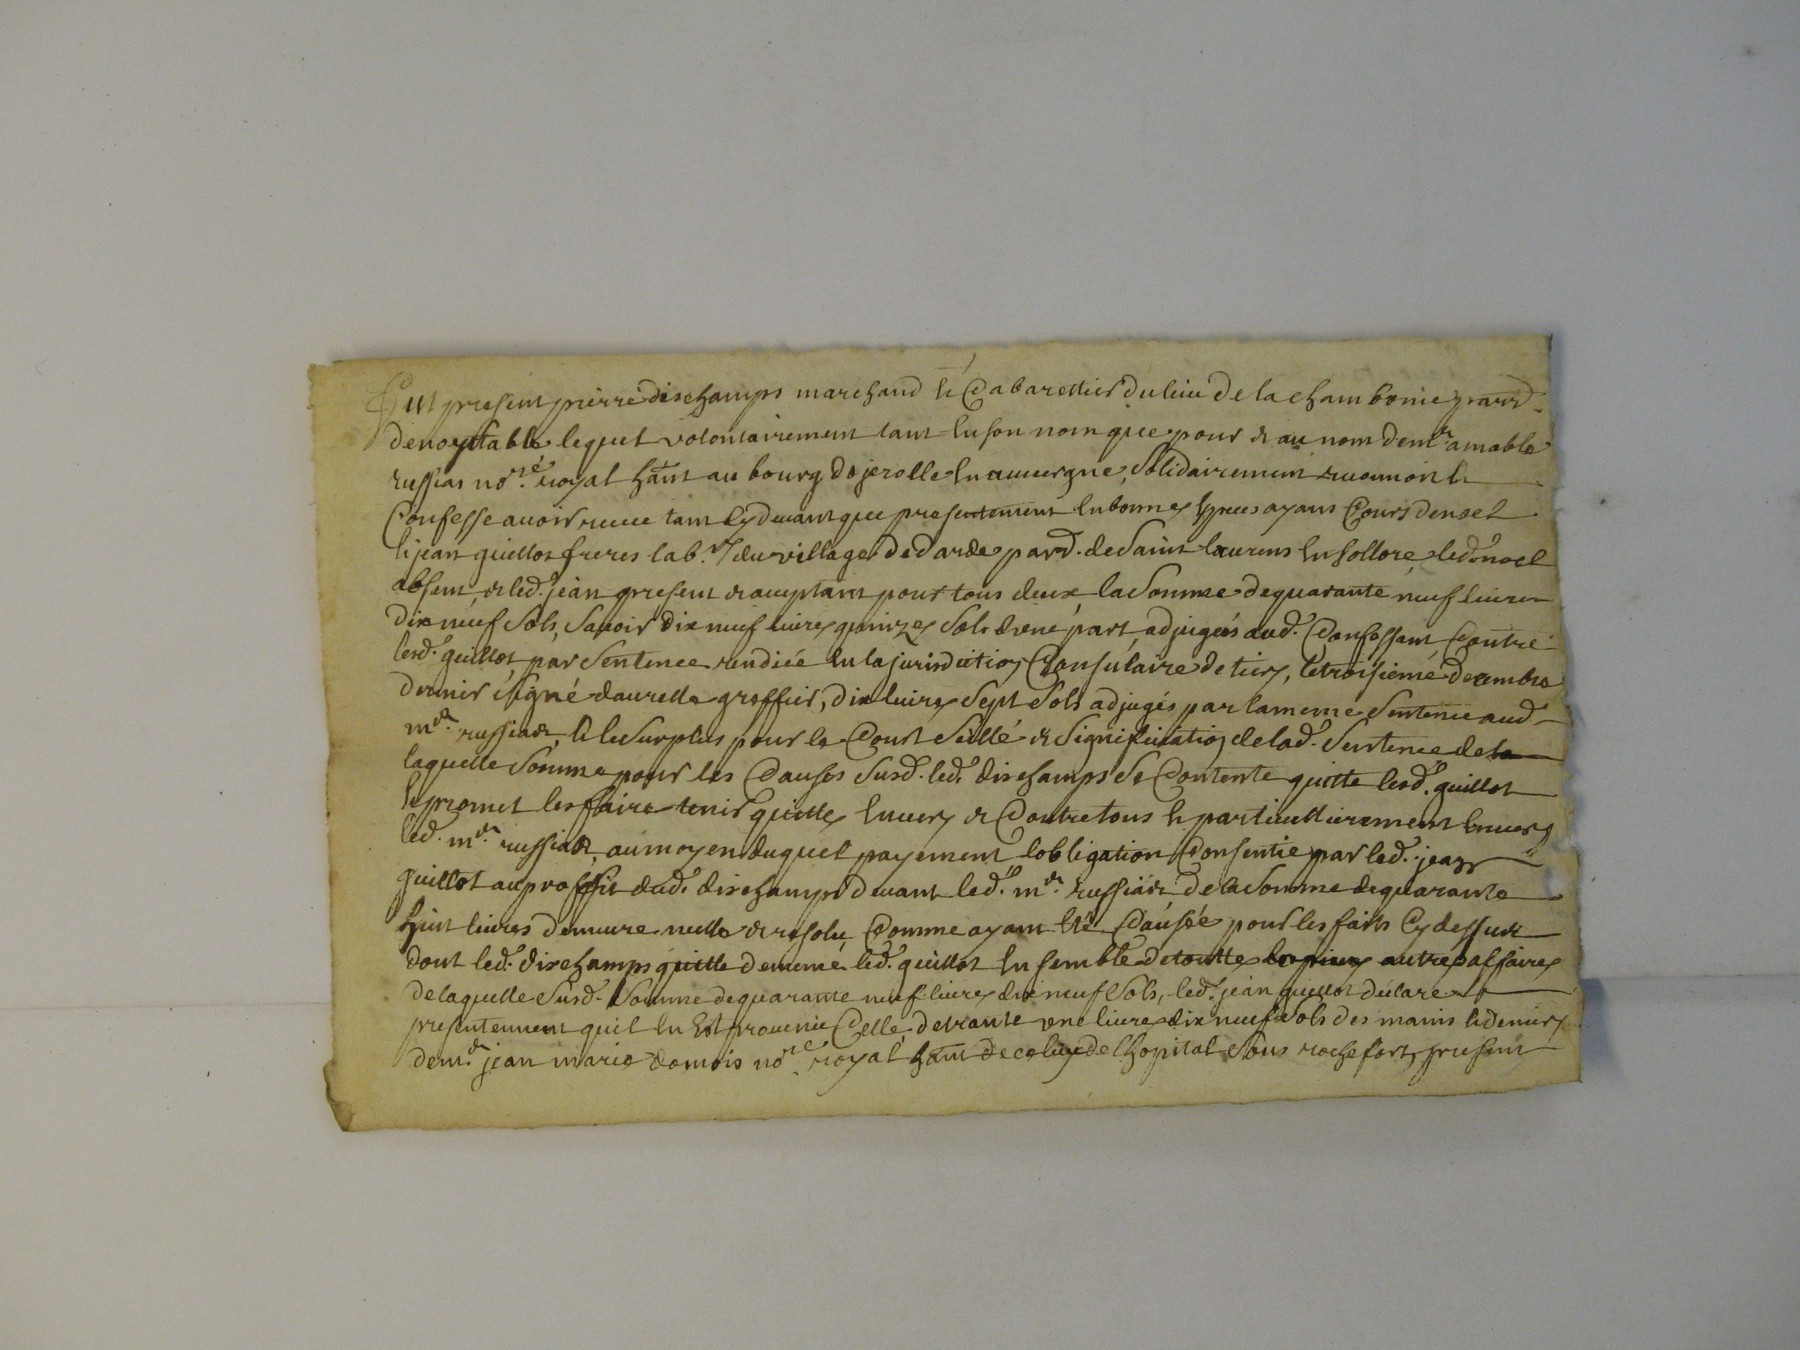 Fut present pierre dischamps marchand et Cabarettier du lieu de la chambonie parr.
de noyttable lequel volontairement tant en son nom que pour & au nom de mr. amable
russias nore. royal hant au bourg de jerolle en auuergne, Solidairement reconnoit et
Confesse auoir receu tant cy deuant que presentement en bonnes especes ayans Cours de noel
et jean guillot freres lab.rs du village de darde parr. de Saint laurens en sollore, led. noel
absent, & led. jean present & acceptant pour tous deux, la Somme de quarante neuf liures
dix neuf Sols, Sauoir dix neuf liures quinzes Sols d'une part adjugés aud. Confessant Contre
lesd. guillot par Sentence rendüe en la jurisdiction Consulaire de tiers, le troisieme decembre
dernier signé daurelle greffier, dix liures Sept Sols adjugés par la meme Sentence aud.
mr. russias, et le Surplus pour le Cout Scellé & Signiffication de lad. Sentence de
laquelle Somme pour les Causes Susd. led. dischamps Se Contente quitte lesd. guillot
et promet les faire tenir quittes enuers & Contre tous et particullierement enuers
led. mr. russias, au moyen duquel payement l'obligation Consentie par led. jean
guillot au proffit dud. dischamps deuant led. mr. russias de la Somme de quarante
huit liures demeure nulle & resolu Comme ayant eté Causée pour les faits Cy dessus
dont led. dischamps quitte de meme led. guillot ensemble de touttes autres affaires
de laquelle Susd. Somme de quarante neuf liures dix neuf Sols, led. jean guillot declare
presentement quil en Est prouenüe Celle de trante une liures dix neuf Sols des mains et deniers
de mr. jean marie domois nore. royal hant de l'hopital Sous rochefort, present